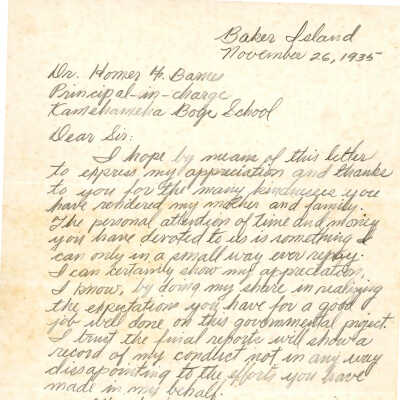 Baker Island
November 26, 1935
Dr. Homer F. Barnes
Principal-in-charge
Kamehameha Boys School
Dear Sir:
I hope by means of this letter
to express my appreciation and thanks
to you for the many kindnesses you
have rendered my mother and family.
The personal attention of time and money
you have devoted to us is something I
can only in a small way ever repay.
I can certainly show my appreciation,
I know, by doing my share in realizing
the expectations you have for a good
job well done on this governmental project.
I trust the final reports will show a
record of my conduct not in any way
dissapointing to the efforts you have
made in my behalf.